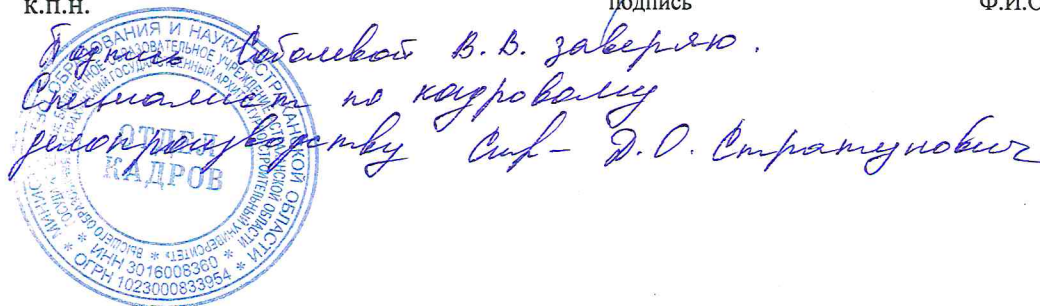 к.п.н. подпись Ф.И.О
Подпись Соболевой В.В. заверяю.
Специалист по кадровому
делопроизводству Д.О. Стратунович
ОТДЕЛ
КАДРОВ
ОБРАЗОВАНИЯ И НАУКИ АСТРАХАНСКОЙ ОБЛАСТИ
* ИНН 3016008360 *
* ОГРН 1023000833954 *